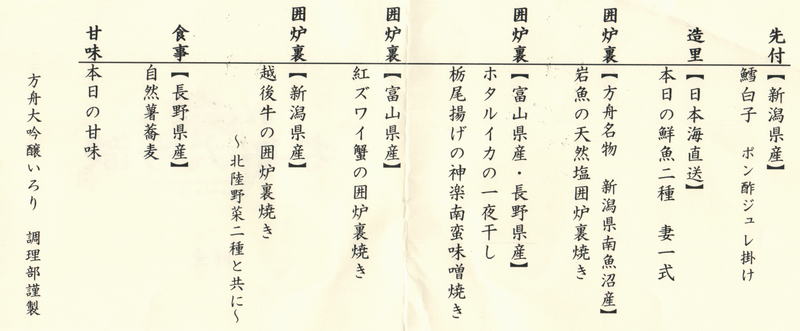 先付
【新潟県産】
鱈白子　ポン酢ジュレ掛け
造里
【日本海直送】
本日の鮮魚二種　妻一式
囲炉裏
【方舟名物　新潟県南魚沼産】
岩魚の天然塩囲炉裏焼き
囲炉裏
【富山県産・長野県産】
ホタルイカの一夜干し
栃尾揚げの神楽南蛮味噌焼き
囲炉裏
【富山県産】
紅ズワイ蟹の囲炉裏焼き
囲炉裏
【新潟県産】
越後牛の囲炉裏焼き
～北陸野菜二種と共に～
食事
【長野県産】
自然薯蕎麦
甘味
本日の甘味
方舟大吟醸いろり　調理部謹製